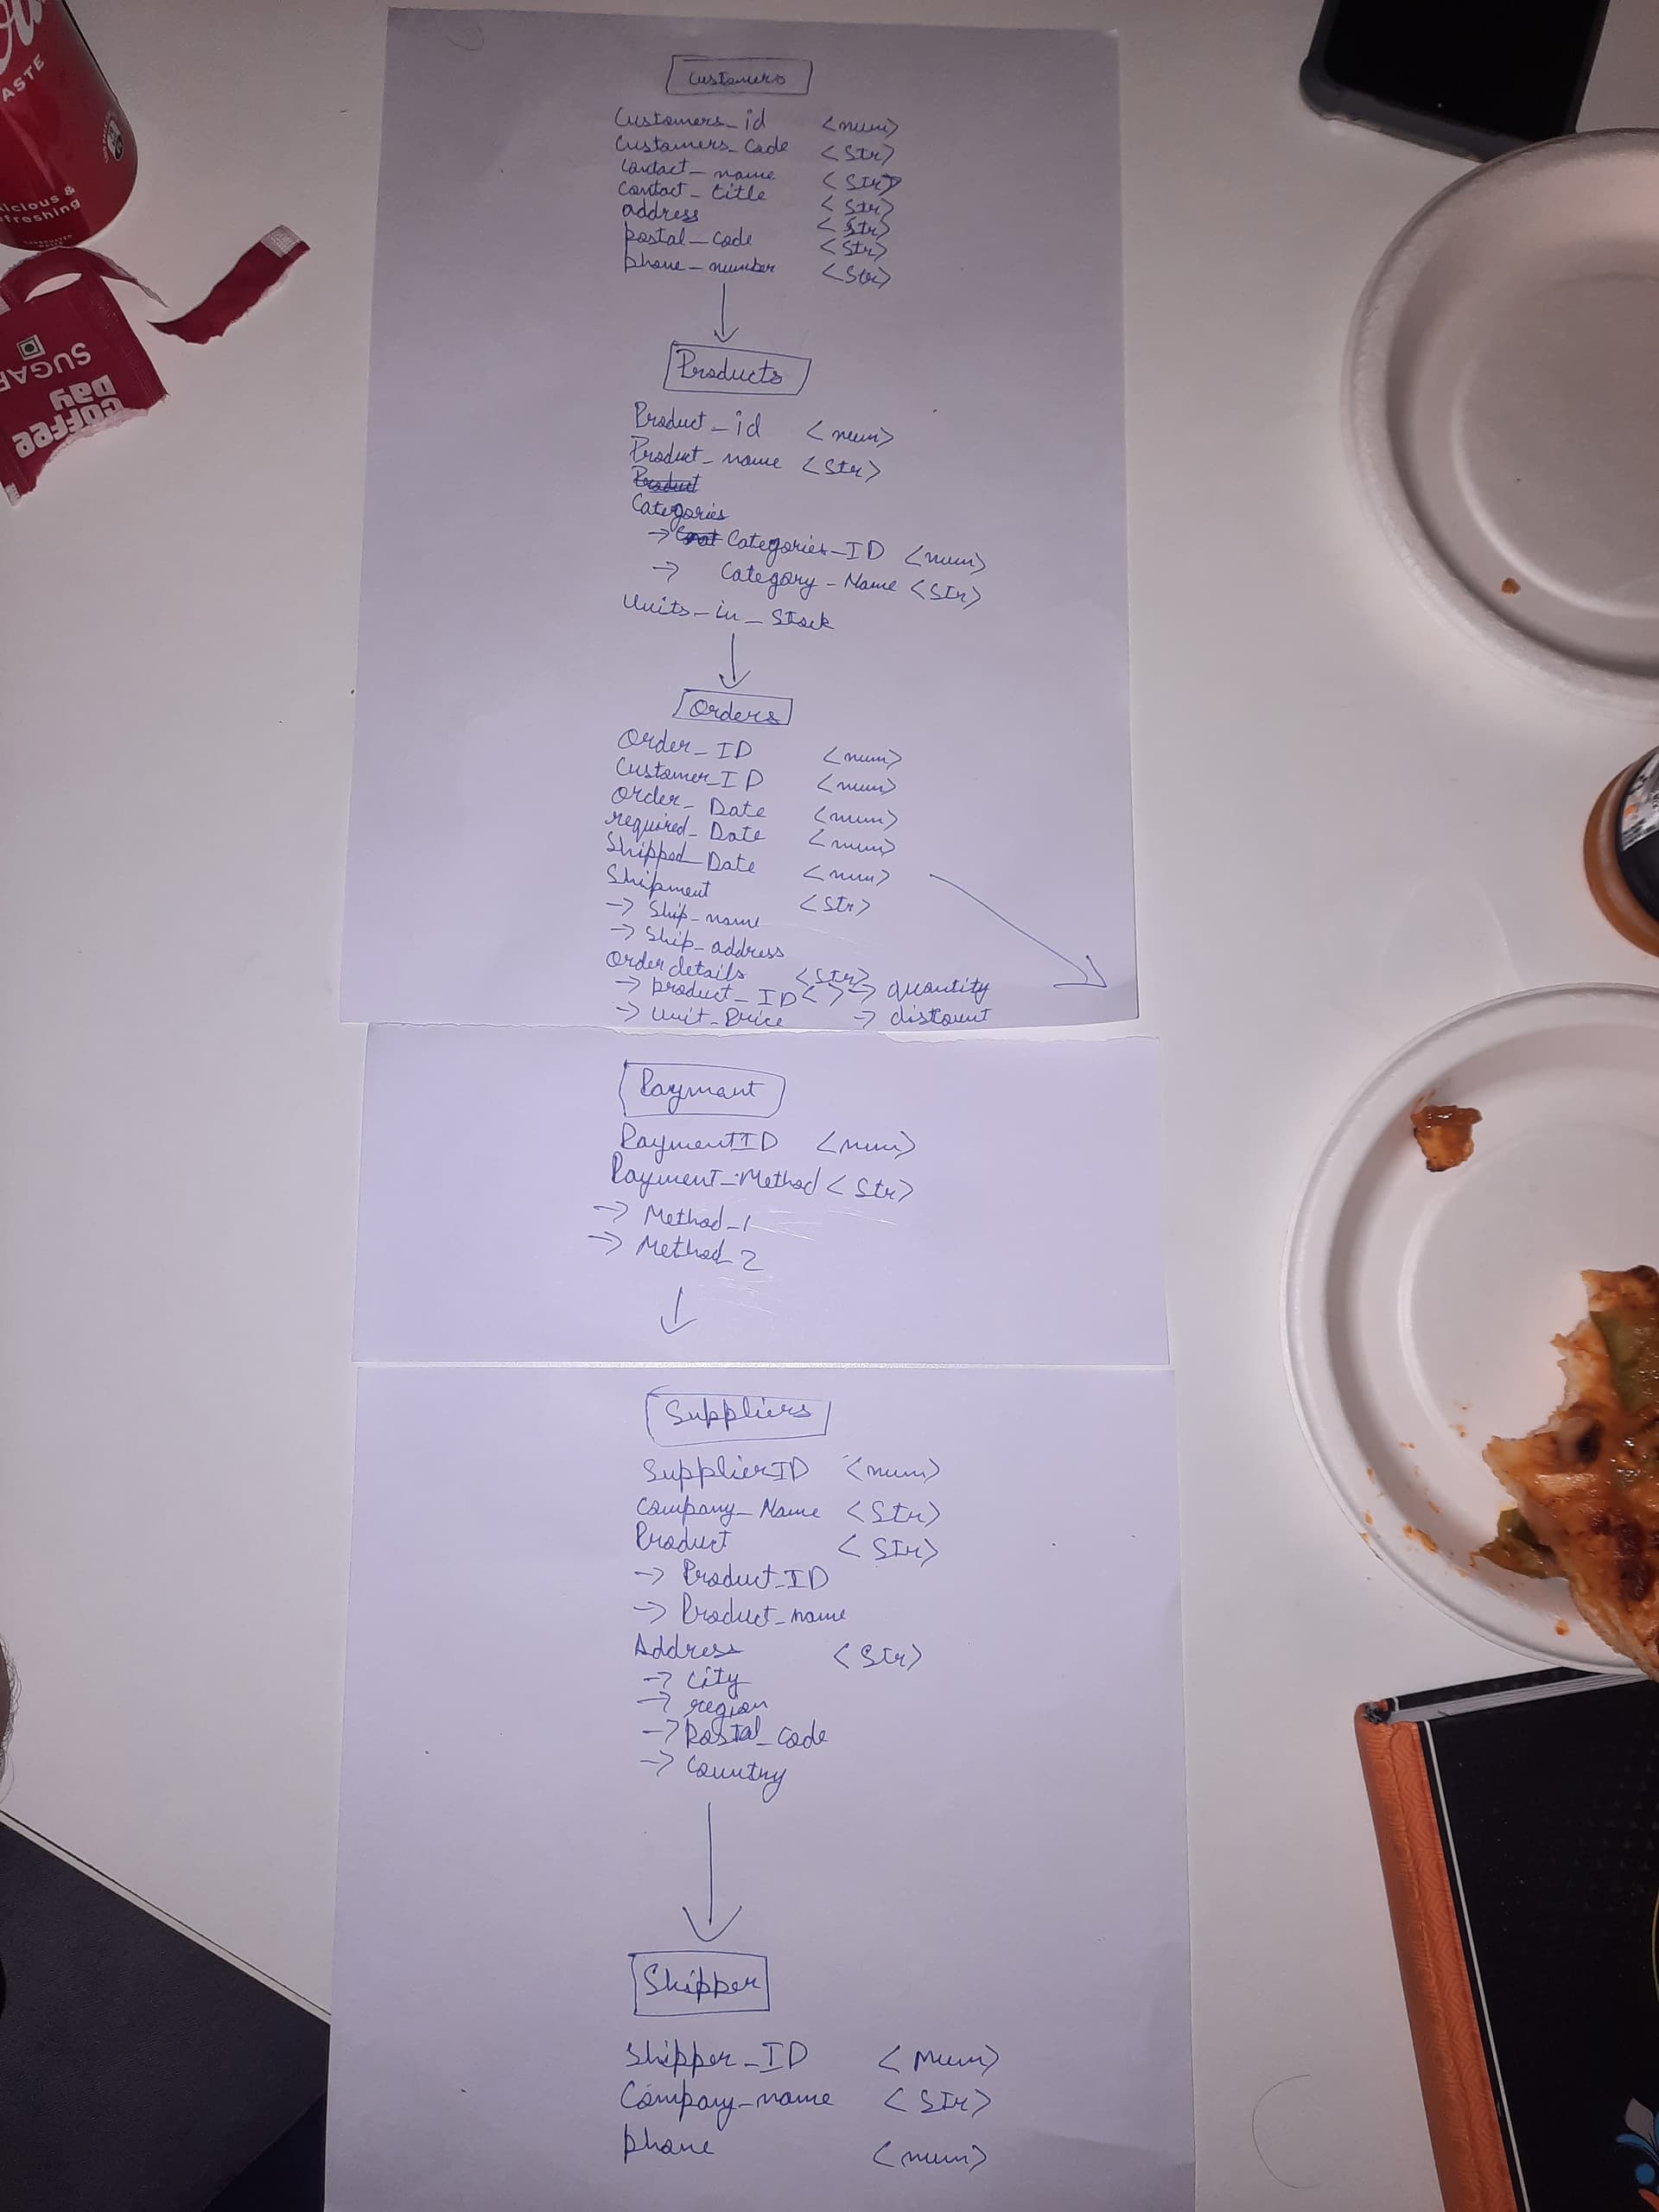 Customers
Customers_id <num>
Customers_Code <Str>
contact_name <Str>
Contact_title <Str>
address <Str>
postal_code <Str>
phone_number <Str>
Products
Product_id <num>
Product_name <Str>
Product
Categories
→ Categories_ID <num>
→ Category_Name <Str>
Units_in_Stock
Orders
Order_ID <num>
Customer_ID <num>
Order_Date <num>
required_Date <num>
Shipped_Date <num>
Shipment <Str>
→ Ship_name
→ Ship_address
Order details <Str>
→ product_ID < > → quantity
→ Unit_Price → discount
Payment
PaymentID <num>
Payment_Method <Str>
→ Method_1
→ Method_2
Suppliers
SupplierID <num>
Company_Name <Str>
Product <Str>
→ Product_ID
→ Product_name
Address <Str>
→ City
→ region
→ Postal_code
→ Country
Shipper
Shipper_ID <num>
Company_name <Str>
phone <num>
ASTE
licious &
freshing
SUGAR
COFFEE
DAY